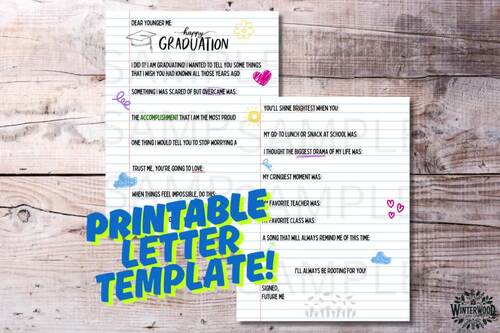 DEAR YOUNGER ME:
happy
GRADUATION
I DID IT! I AM GRADUATING! I WANTED TO TELL YOU SOME THINGS
THAT I WISH YOU HAD KNOWN ALL THOSE YEARS AGO:
SOMETHING I WAS SCARED OF BUT OVERCAME WAS:
THE ACCOMPLISHMENT THAT I AM THE MOST PROUD
ONE THING I WOULD TELL YOU TO STOP WORRYING A
TRUST ME, YOU'RE GOING TO LOVE:
WHEN THINGS FEEL IMPOSSIBLE, DO THIS:
YOU'LL SHINE BRIGHTEST WHEN YOU:
MY GO-TO LUNCH OR SNACK AT SCHOOL WAS:
I THOUGHT THE BIGGEST DRAMA OF MY LIFE WAS:
MY CRINGIEST MOMENT WAS:
MY FAVORITE TEACHER WAS:
MY FAVORITE CLASS WAS:
A SONG THAT WILL ALWAYS REMIND ME OF THIS TIME:
I'LL ALWAYS BE ROOTING FOR YOU!
SIGNED,
FUTURE ME
PRINTABLE
LETTER
TEMPLATE!
SAMPLE
WINTERWOOD